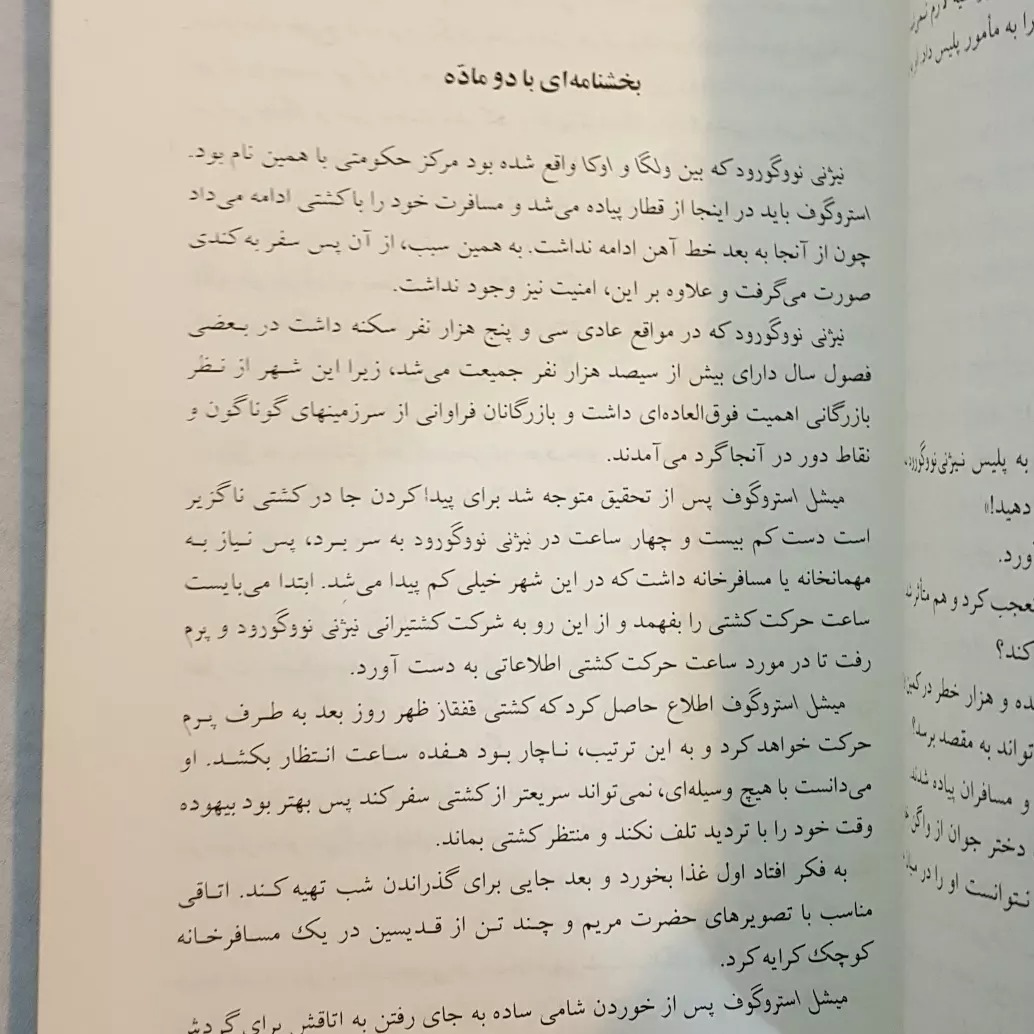 بخشنامه‌ای با دو مادّه
نیژنی نووگورود که بین ولگا و اوکا واقع شده بود مرکز حکومتی با همین نام بود.
استروگوف باید در اینجا از قطار پیاده می‌شد و مسافرت خود را با کشتی ادامه می‌داد
چون از آنجا به بعد خط آهن ادامه نداشت. به همین سبب، از آن پس سفر به کندی
صورت می‌گرفت و علاوه بر این، امنیت نیز وجود نداشت.
نیژنی نووگورود که در مواقع عادی سی و پنج هزار نفر سکنه داشت در بعضی
فصول سال دارای بیش از سیصد هزار نفر جمیعت می‌شد، زیرا این شهر از نظر
بازرگانی اهمیت فوق‌العاده‌ای داشت و بازرگانان فراوانی از سرزمینهای گوناگون و
نقاط دور در آنجا گرد می‌آمدند.
میشل استروگوف پس از تحقیق متوجه شد برای پیدا کردن جا در کشتی ناگزیر
است دست کم بیست و چهار ساعت در نیژنی نووگورود به سر برد، پس نیاز به
مهمانخانه یا مسافرخانه داشت که در این شهر خیلی کم پیدا می‌شد. ابتدا می‌بایست
ساعت حرکت کشتی را بفهمد و از این رو به شرکت کشتیرانی نیژنی نووگورود و پرم
رفت تا در مورد ساعت حرکت کشتی اطلاعاتی به دست آورد.
میشل استروگوف اطلاع حاصل کرد که کشتی قفقاز ظهر روز بعد به طرف پرم
حرکت خواهد کرد و به این ترتیب، ناچار بود هفده ساعت انتظار بکشد. او
می‌دانست با هیچ وسیله‌ای، نمی‌تواند سریعتر از کشتی سفر کند پس بهتر بود بیهوده
وقت خود را با تردید تلف نکند و منتظر کشتی بماند.
به فکر افتاد اول غذا بخورد و بعد جایی برای گذراندن شب تهیه کند. اتاقی
مناسب با تصویرهای حضرت مریم و چند تن از قدیسین در یک مسافرخانه
کوچک کرایه کرد.
میشل استروگوف پس از خوردن شامی ساده به جای رفتن به اتاقش برای گردش
لازم
را به مأمور پلیس داد.
به پلیس نیژنی نووگورود
دهید!»
آورد.
تعجب کرد و هم متأثر
کند؟
و هزار خطر در کمین
تواند به مقصد برسد؟
و مسافران پیاده شدند.
دختر جوان از واگن
نتوانست او را در میان